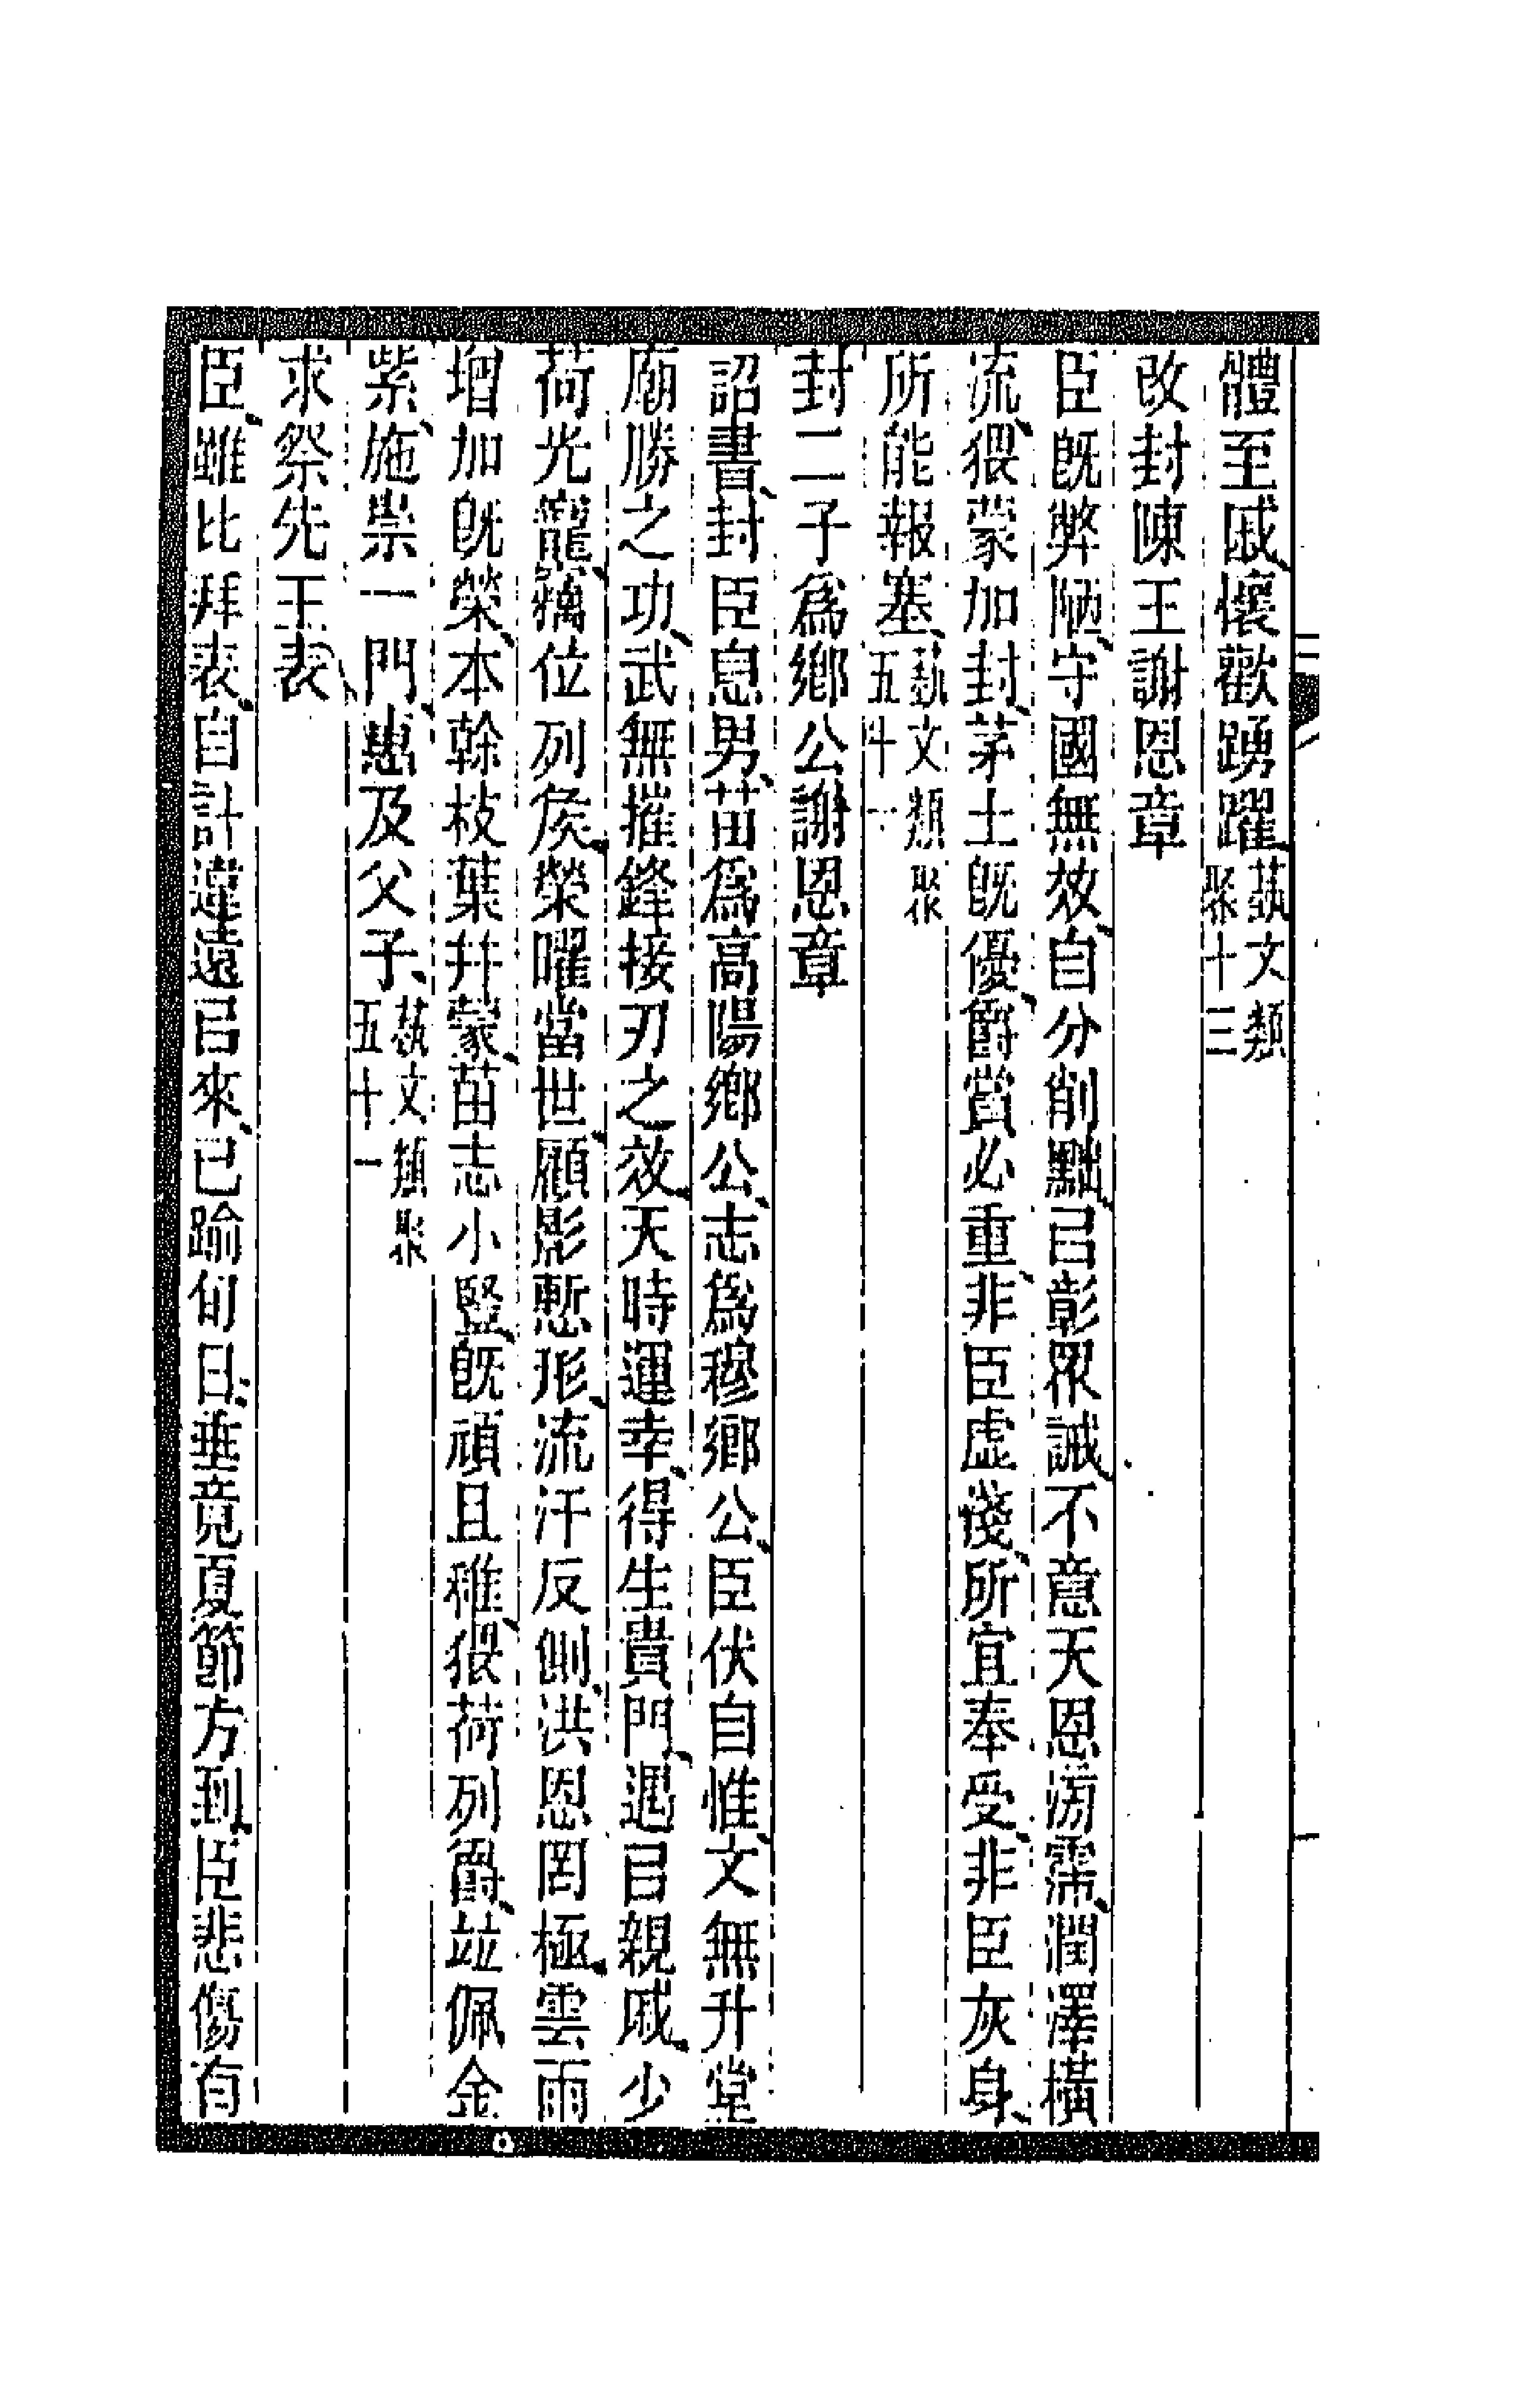 體至戚懷歡踴躍藝文類聚十三
改封陳王謝恩章
臣既弊陋、守國無效、自分削黜、㠯彰眾誡、不意天恩滂霈、潤澤橫
流、猥蒙加封、茅土既優、爵賞必重、非臣虛淺、所宜奉受、非臣灰身、
所能報塞、藝文類聚五十一
封二子為鄉公謝恩章
詔書、封臣息男、苗為高陽鄉公、志為穆鄉公、臣伏自惟、文無升堂
廟勝之功、武無摧鋒接刃之效、天時運幸、得生貴門、遇㠯親戚、少
荷光寵、竊位列侯、榮曜當世、顧影慙形、流汗反側、洪恩罔極、雲雨
增加既榮、本幹枝葉并蒙、苗志小豎、既頑且稚、猥荷列爵、竝佩金
紫、施崇一門、惠及父子、藝文類聚五十一
求祭先王表
臣、雖比拜表、自計違遠㠯來、已踰旬日、垂竟夏節方到、臣悲傷有